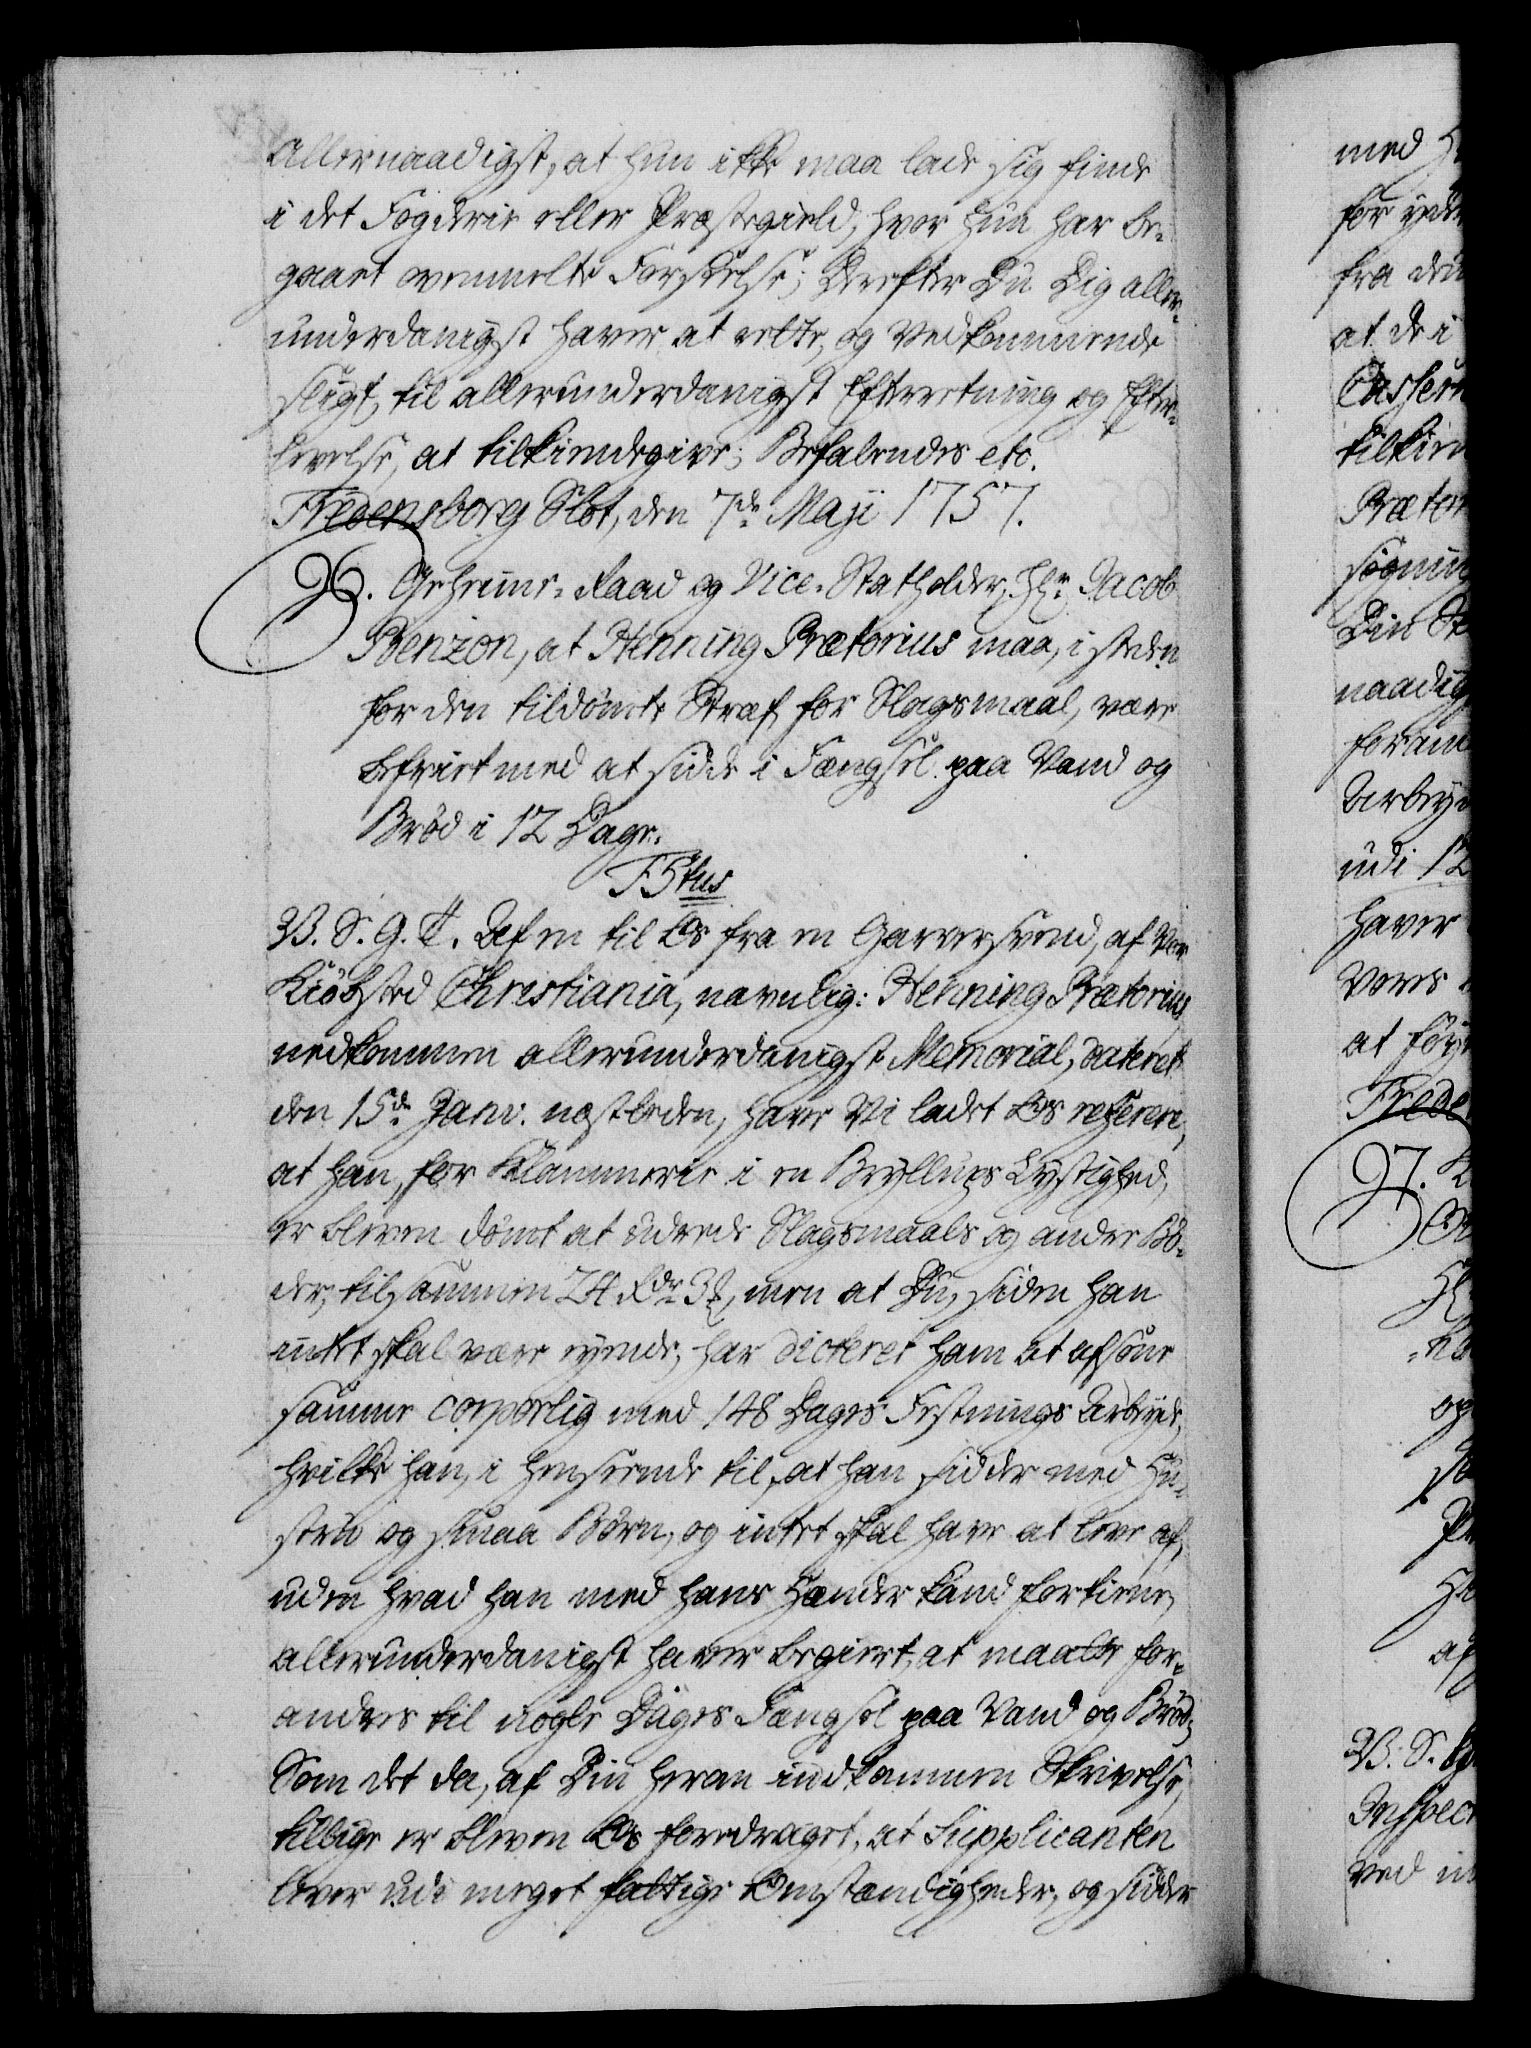 allernaadigst, at hun ikke maa lade sig finde
i det Fogderie eller Præstegield, hvor hun har be-
gaaet ovenmelte Forseelse; Derefter Du Dig aller-
underdanigst haver at rette, og Vedkommende
sligt, til allerunderdanigst Efterretning og Efter-
levelse, at tilkiendegive; Befalendes etc.
Fredensborg Slot, den 7de Maji 1757.
26. Geheime-Raad og Vice-Statholder, Hr. Jacob
Benzon, at Henning Prætorius maa, i steden
for den tildømte Straf for Slagsmaal, være
befriet med at sidde i Fængsel paa Vand og
Brød i 12 Dage.
F5tus
V. S. G. T. Af en til Os fra en Garversvend, af Vor
Kiøbsted Christiania, navnlig: Henning Prætorius
nedkommen allerunderdanigst Memorial, dateret
den 15de Janv. næstleden, have Vi ladet Os referere,
at han, for Klammerie i en Bryllups Lystighed,
er bleven dømt at udrede Slagsmaals og andre Bø-
der, tilsammen 24 Rdr 3 , men at Du, siden han
intet skal være eyende, har dicteret ham at afsone
samme corporlig med 148 Dages Festnings Arbeyde,
hvilke han, i henseende til, at han sidder med Hu-
strue og smaa Børn, og intet skal have at leve af,
uden hvad han med hans Hænder kand fortiene,
allerunderdanigst haver begiert, at maatte for-
andres til nogle Dages Fængsel paa Vand og Brød;
Som det da, af Din heran indkommen Skrivelse,
tillige er bleven Os foredraget, at Supplicanten
lever udi meget fattige Omstændigheder, og sidder